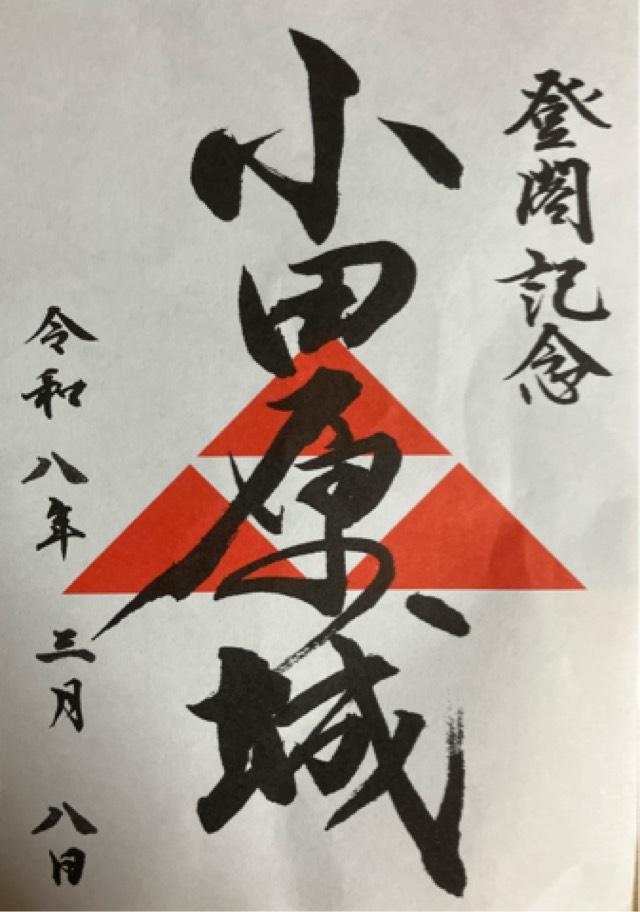 登閣記念
小田原城
令和八年 三月 八日